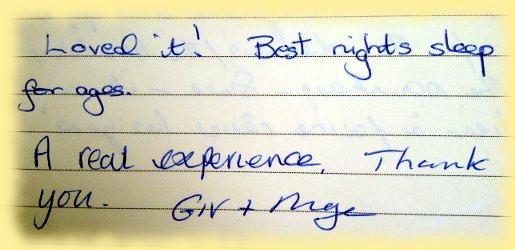 Loved it! Best nights sleep
for ages.
A real experience. Thank
you. Giv +